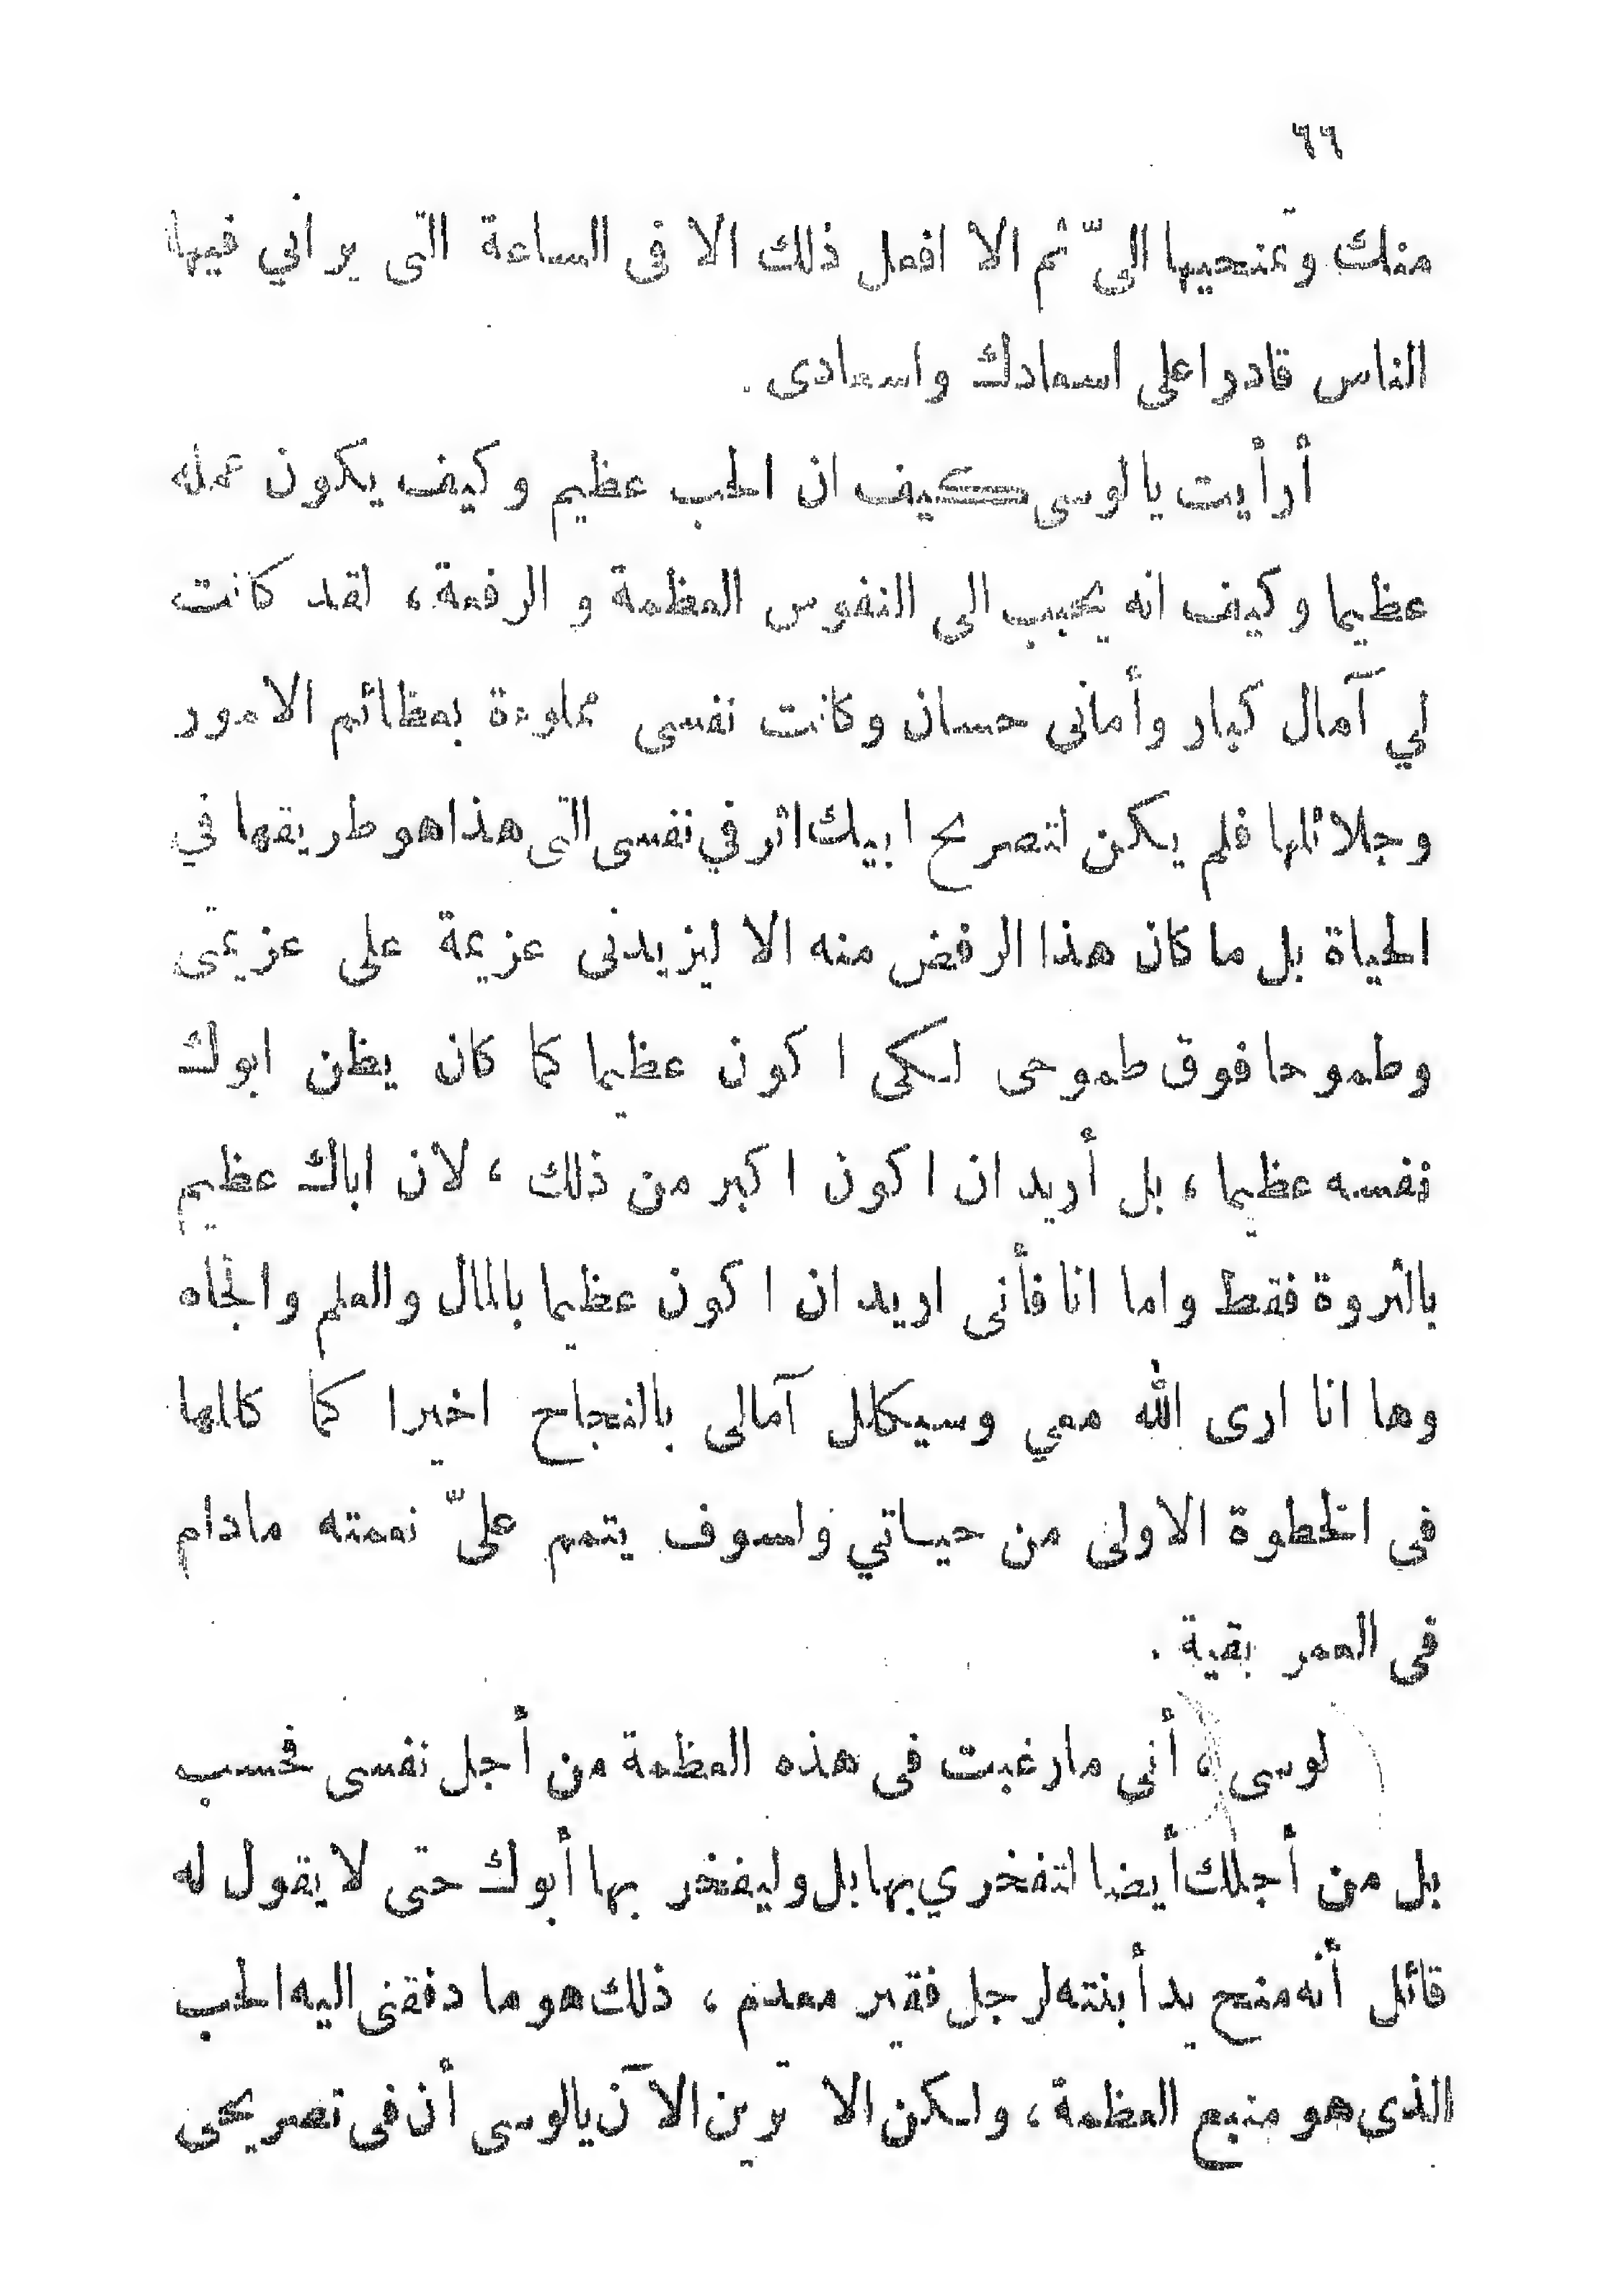 ٦٦
منك وتمنحيها الىّ ثم الا افعل ذلك الا فى الساعة التى يرانى فيها
الناس قادرا على اسعادك واسعادى .
أرأيت يالوسى كيف ان الحب عظيم وكيف يكون عمله
عظيما وكيف انه يحبب الى النفوس العظمة و الرفعة ، لقد كانت
لي آمال كبار وأمانى حسان وكانت نفسى مملوءة بعظائم الامور
وجلائلها فلم يكن لتصريح ابيك اثر في نفسى التى هذا هو طريقها في
الحياة بل ما كان هذا الرفض منه الا ليزيدنى عزيمة على عزيمتى
وطموحا فوق طموحى لكى اكون عظيما كما كان يظن ابوك
نفسه عظيما ، بل أريد ان اكون اكبر من ذلك ، لان اباك عظيم
بالثروة فقط واما انا فأنى اريد ان اكون عظيما بالمال والعلم والجاه
وها انا ارى الله معي وسيكلل آمالى بالنجاح اخيرا كما كللها
في الخطوة الاولى من حياتي ولسوف يتمم علىّ نعمته مادام
فى العمر بقية .
لوسى ، أنى مارغبت فى هذه العظمة من أجل نفسى فحسب
بل من أجلك أيضا لتفخري بها بل وليفخر بها أبوك حتى لا يقول له
قائل أنه منح يد أبنته لرجل فقير معدم ، ذلك هو ما دفقنى اليه الحب
الذى هو منبع العظمة ، ولكن الا ترين الآن يالوسى أن فى تصريحى